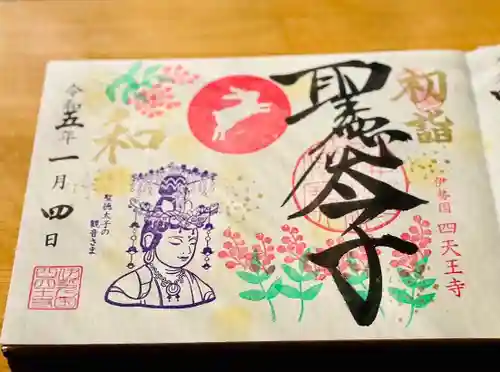 初詣
聖徳太子
伊勢国 四天王寺
和
聖徳太子の
観音さま
令和五年
一月四日